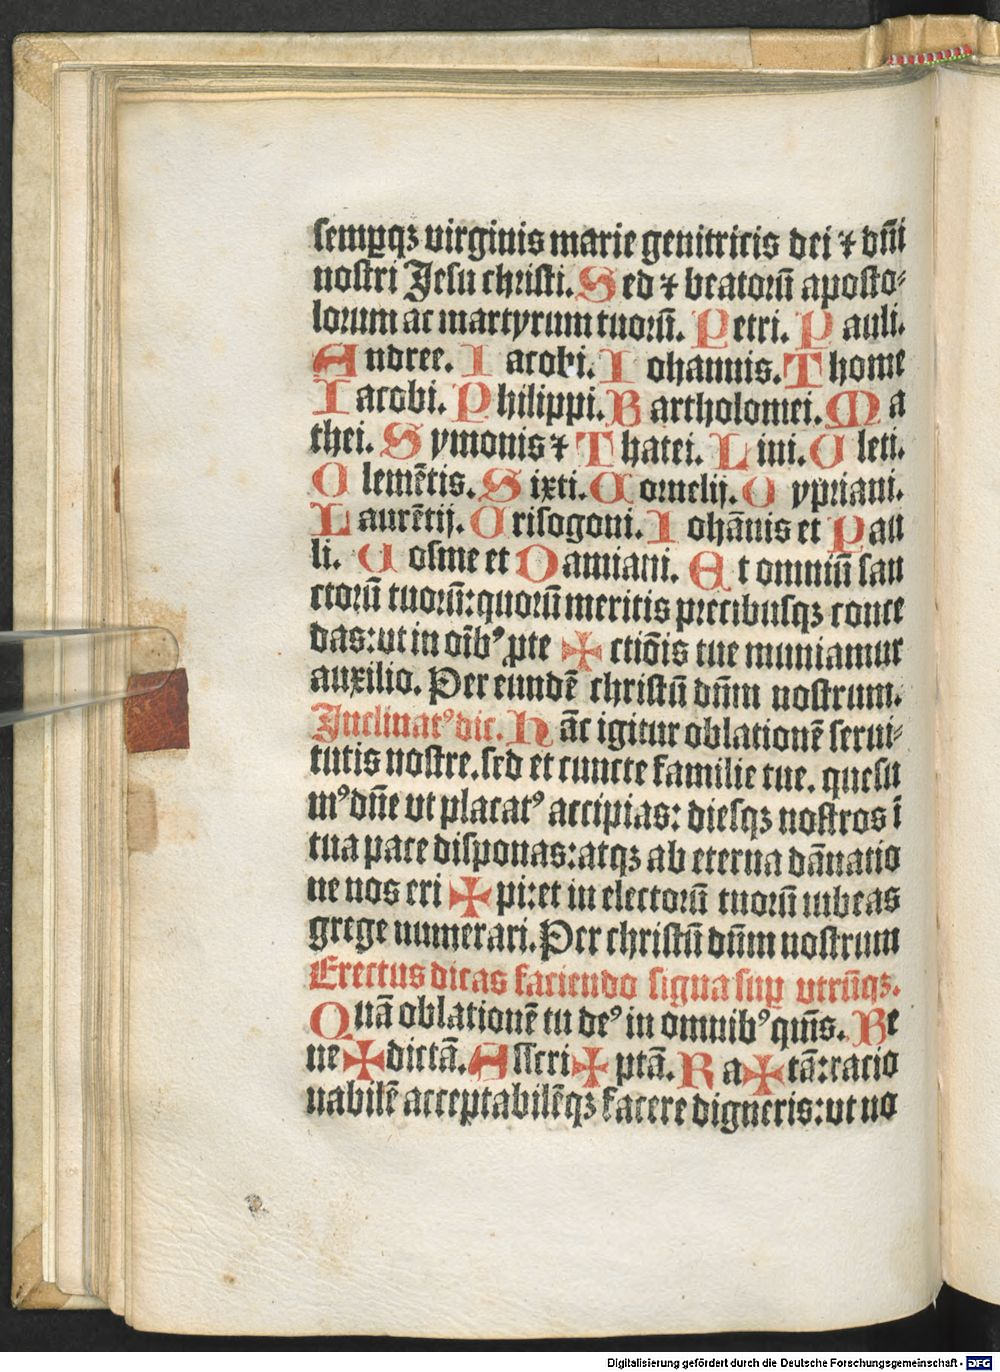 semꝑqꝫ virginis marie genitricis dei ⁊ dn̄i
nostri Jesu christi. Sed ⁊ beatoꝛū aposto⸗
lorum ac martyrum tuoꝛū. Petri. Pauli.
Andree. Iacobi. Iohannis. Thome
Iacobi. Philippi. Bartholomei. Ma
thei. Symonis ⁊ Thatei. Lini. Cleti.
Clemētis. Sixti. Cornelij. Cypriani.
Laurētij. Crisogoni. Iohānis et Pau
li. Cosme et Damiani. Et omniū san
ctoꝛū tuoꝛū: quoꝛū meritis precibusqꝫ conce
das: ut in oībꝰ ꝓte ✠ ctiōis tue muniamur
auxilio. Per eundē christū dn̄m nostrum.
Inclinatꝰ dic. Hāc igitur oblationē serui⸗
tutis nostre. sed et cuncte familie tue. quesu
mꝰ dn̄e ut placatꝰ accipias: diesqꝫ nostros ī
tua pace disponas: atqꝫ ab eterna dānatio
ne nos eri ✠ pi: et in electoꝛū tuoꝛū iubeas
grege numerari. Per christū dn̄m nostrum
Erectus dicas faciendo signa suꝑ utrūqꝫ.
Quā oblationē tu deꝰ in omnibꝰ qum̄s. Be
ne ✠ dictā. Ascri ✠ ptā. Ra ✠ tā: racio
nabilē acceptabilēqꝫ facere digneris: ut no
Digitalisierung gefördert durch die Deutsche Forschungsgemeinschaft - DFG